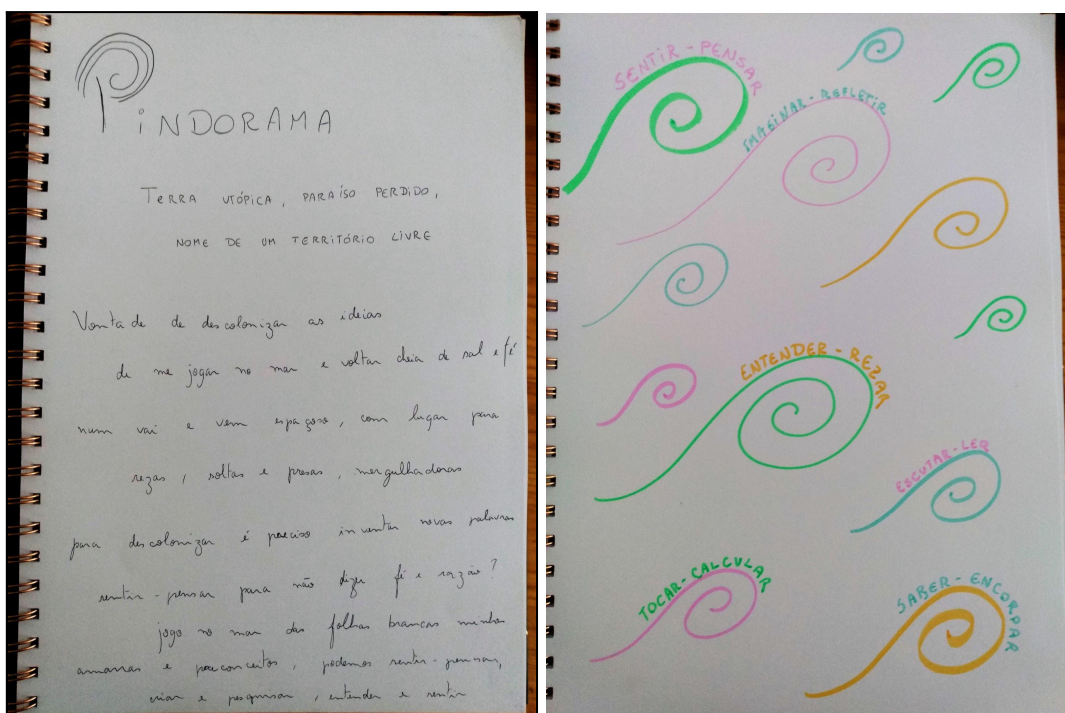 PiNDORAMA
TeRRA UTÓPICA, PARAíSO PERDiDO,
NOME DE UM TERRiTÓRiO LiVRE
Vontade de descolonizar as ideias
de me jogar no mar e voltar cheia de sal e fé
num vai e vem espaçoso, com lugar para
rezas, soltas e presas, mergulhadoras
para descolonizar é preciso inventar novas palavras
sentir-pensar para não dizer fé e razão?
jogo no mar das folhas brancas minhas
amarras e preconceitos, podemos sentir-pensar,
criar e pesquisar, entender e sentir
SENTiR-PENSAR
IMAGiNAR-REFLETiR
ENTENDER-REZAR
ESCUTAR-LER
TOCAR-CALCULAR
SABER-ENCORPAR